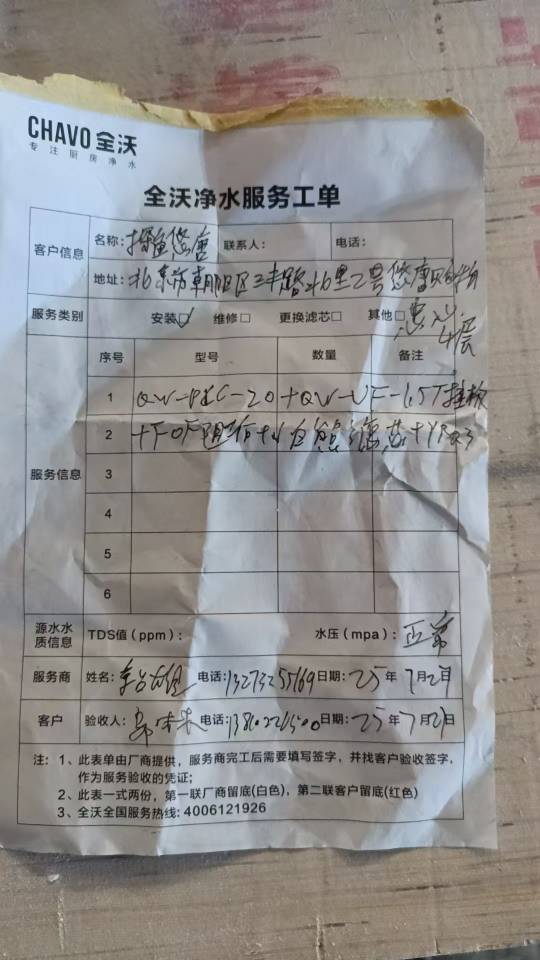 CHAVO 全沃
专注厨房净水
全沃净水服务工单
客户信息 名称: 探鱼悠唐 联系人: 电话:
地址: 北京市朝阳区三丰路北里2号悠唐购物中心4层
服务类别 安装☑ 维修□ 更换滤芯□ 其他□
序号 型号 数量 备注
服务信息
1 QW-PXC-20+QW-UF-1.5T
2 +FOF阻垢
3
4
5
6
源水水质信息 TDS值(ppm): 水压(mpa): 正常
服务商 姓名: 电话: 13273255169 日期: 25年7月2日
客户 验收人: 电话: 日期: 25年7月2日
注: 1、此表单由厂商提供,服务商完工后需要填写签字,并找客户验收签字,
作为服务验收的凭证;
2、此表一式两份,第一联厂商留底(白色),第二联客户留底(红色)
3、全沃全国服务热线: 4006121926